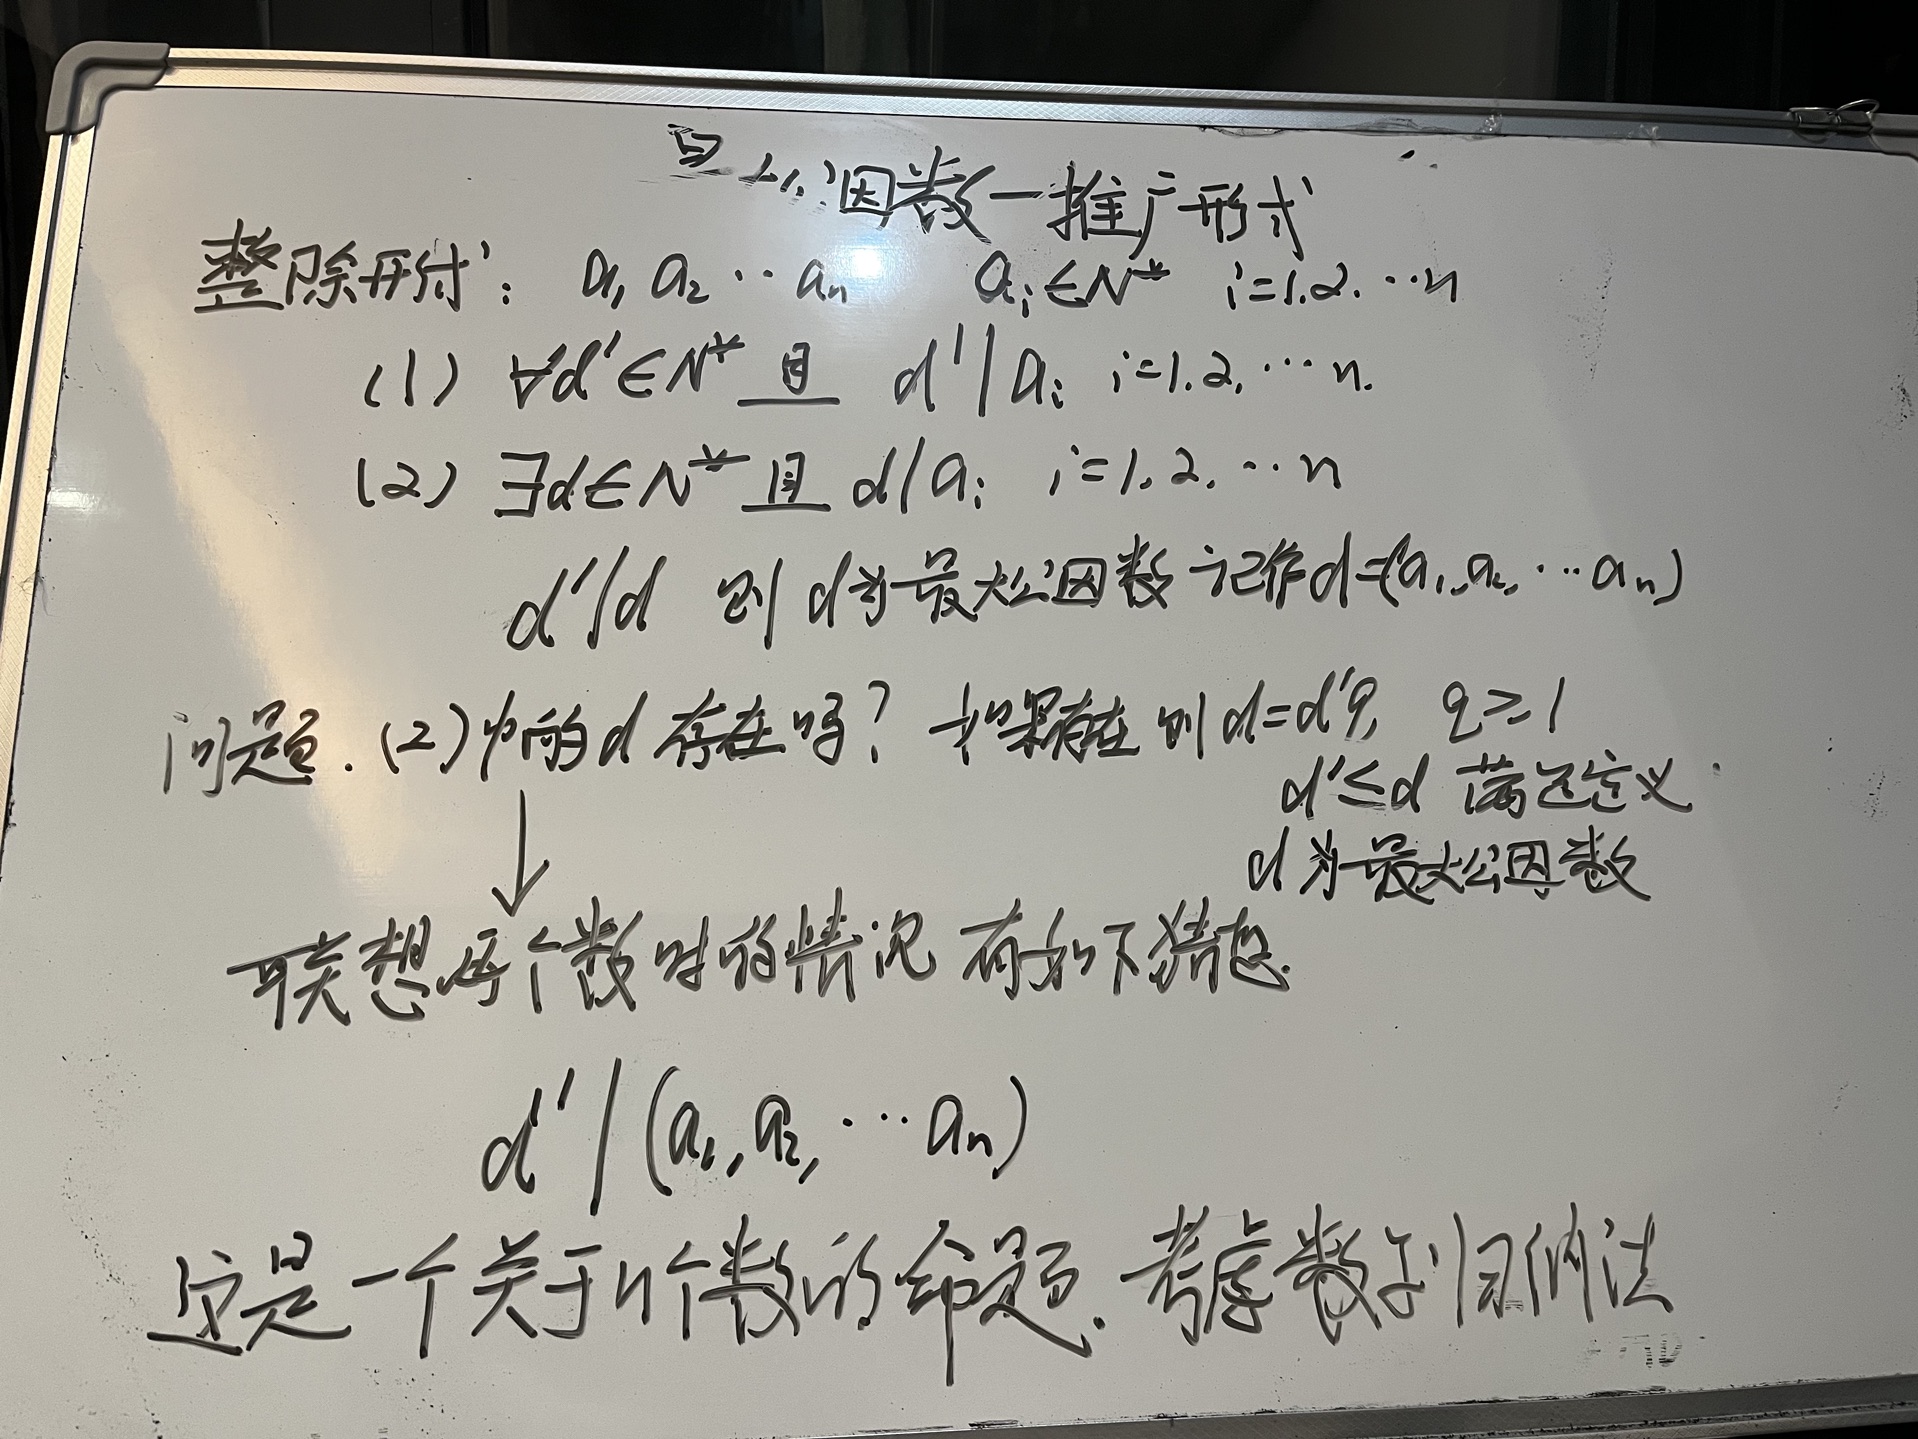 公因数一推广形式
整除形式: a₁, a₂ ··· aₙ  aᵢ∈N* i=1.2.···n
(1) ∀d'∈N* 且 d'|aᵢ i=1.2.···n.
(2) ∃d∈N* 且 d|aᵢ i=1,2,···n
d'|d 则 d为最大公因数 记作d=(a₁,a₂,···aₙ)
问题.(2)中的d存在吗? 如果存在 则d=d'q, q≥1
d'≤d 满足定义
d为最大公因数
联想两个数时的情况 有如下猜想.
d'|(a₁,a₂,···aₙ)
这是一个关于n个数的命题.考虑数学归纳法